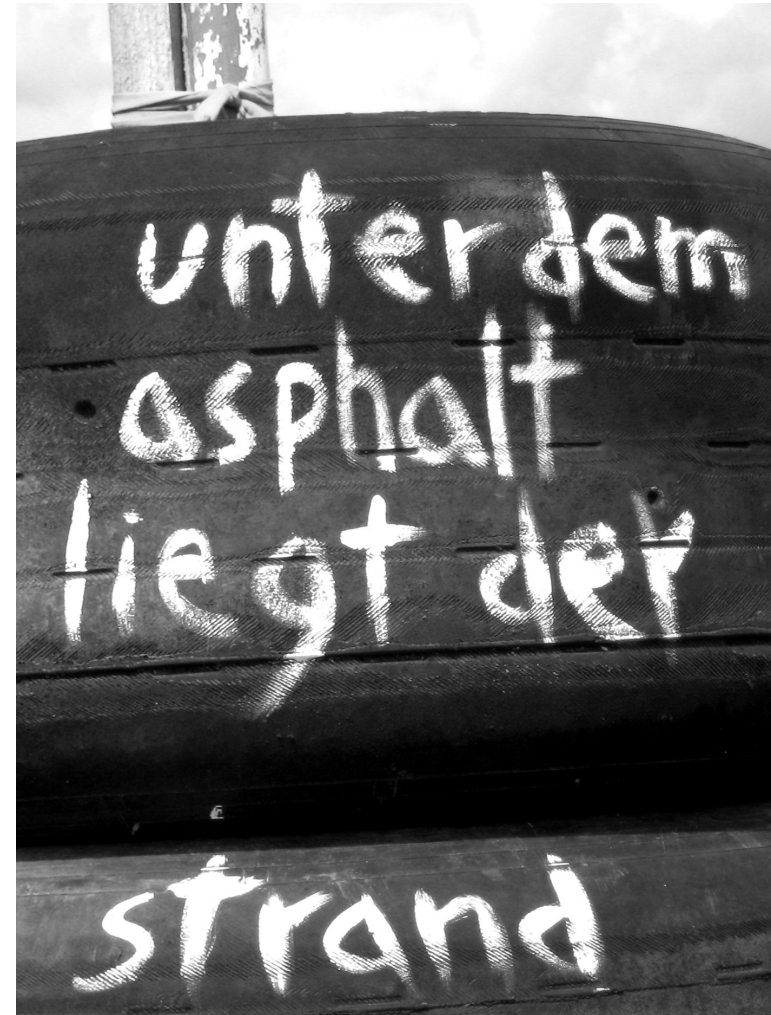 unter dem
asphalt
liegt der
strand